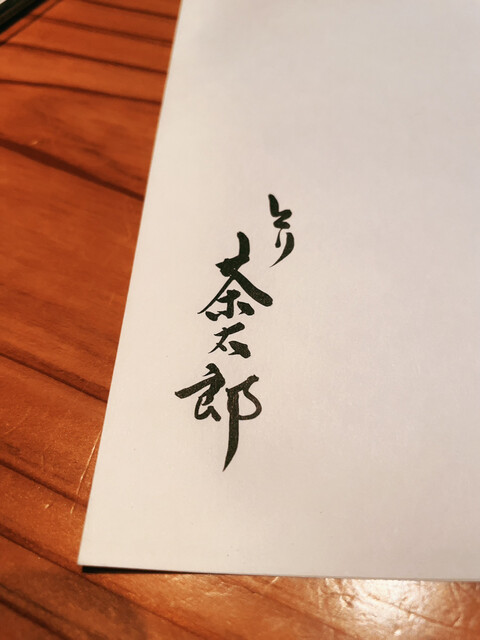 とり
茶太郎